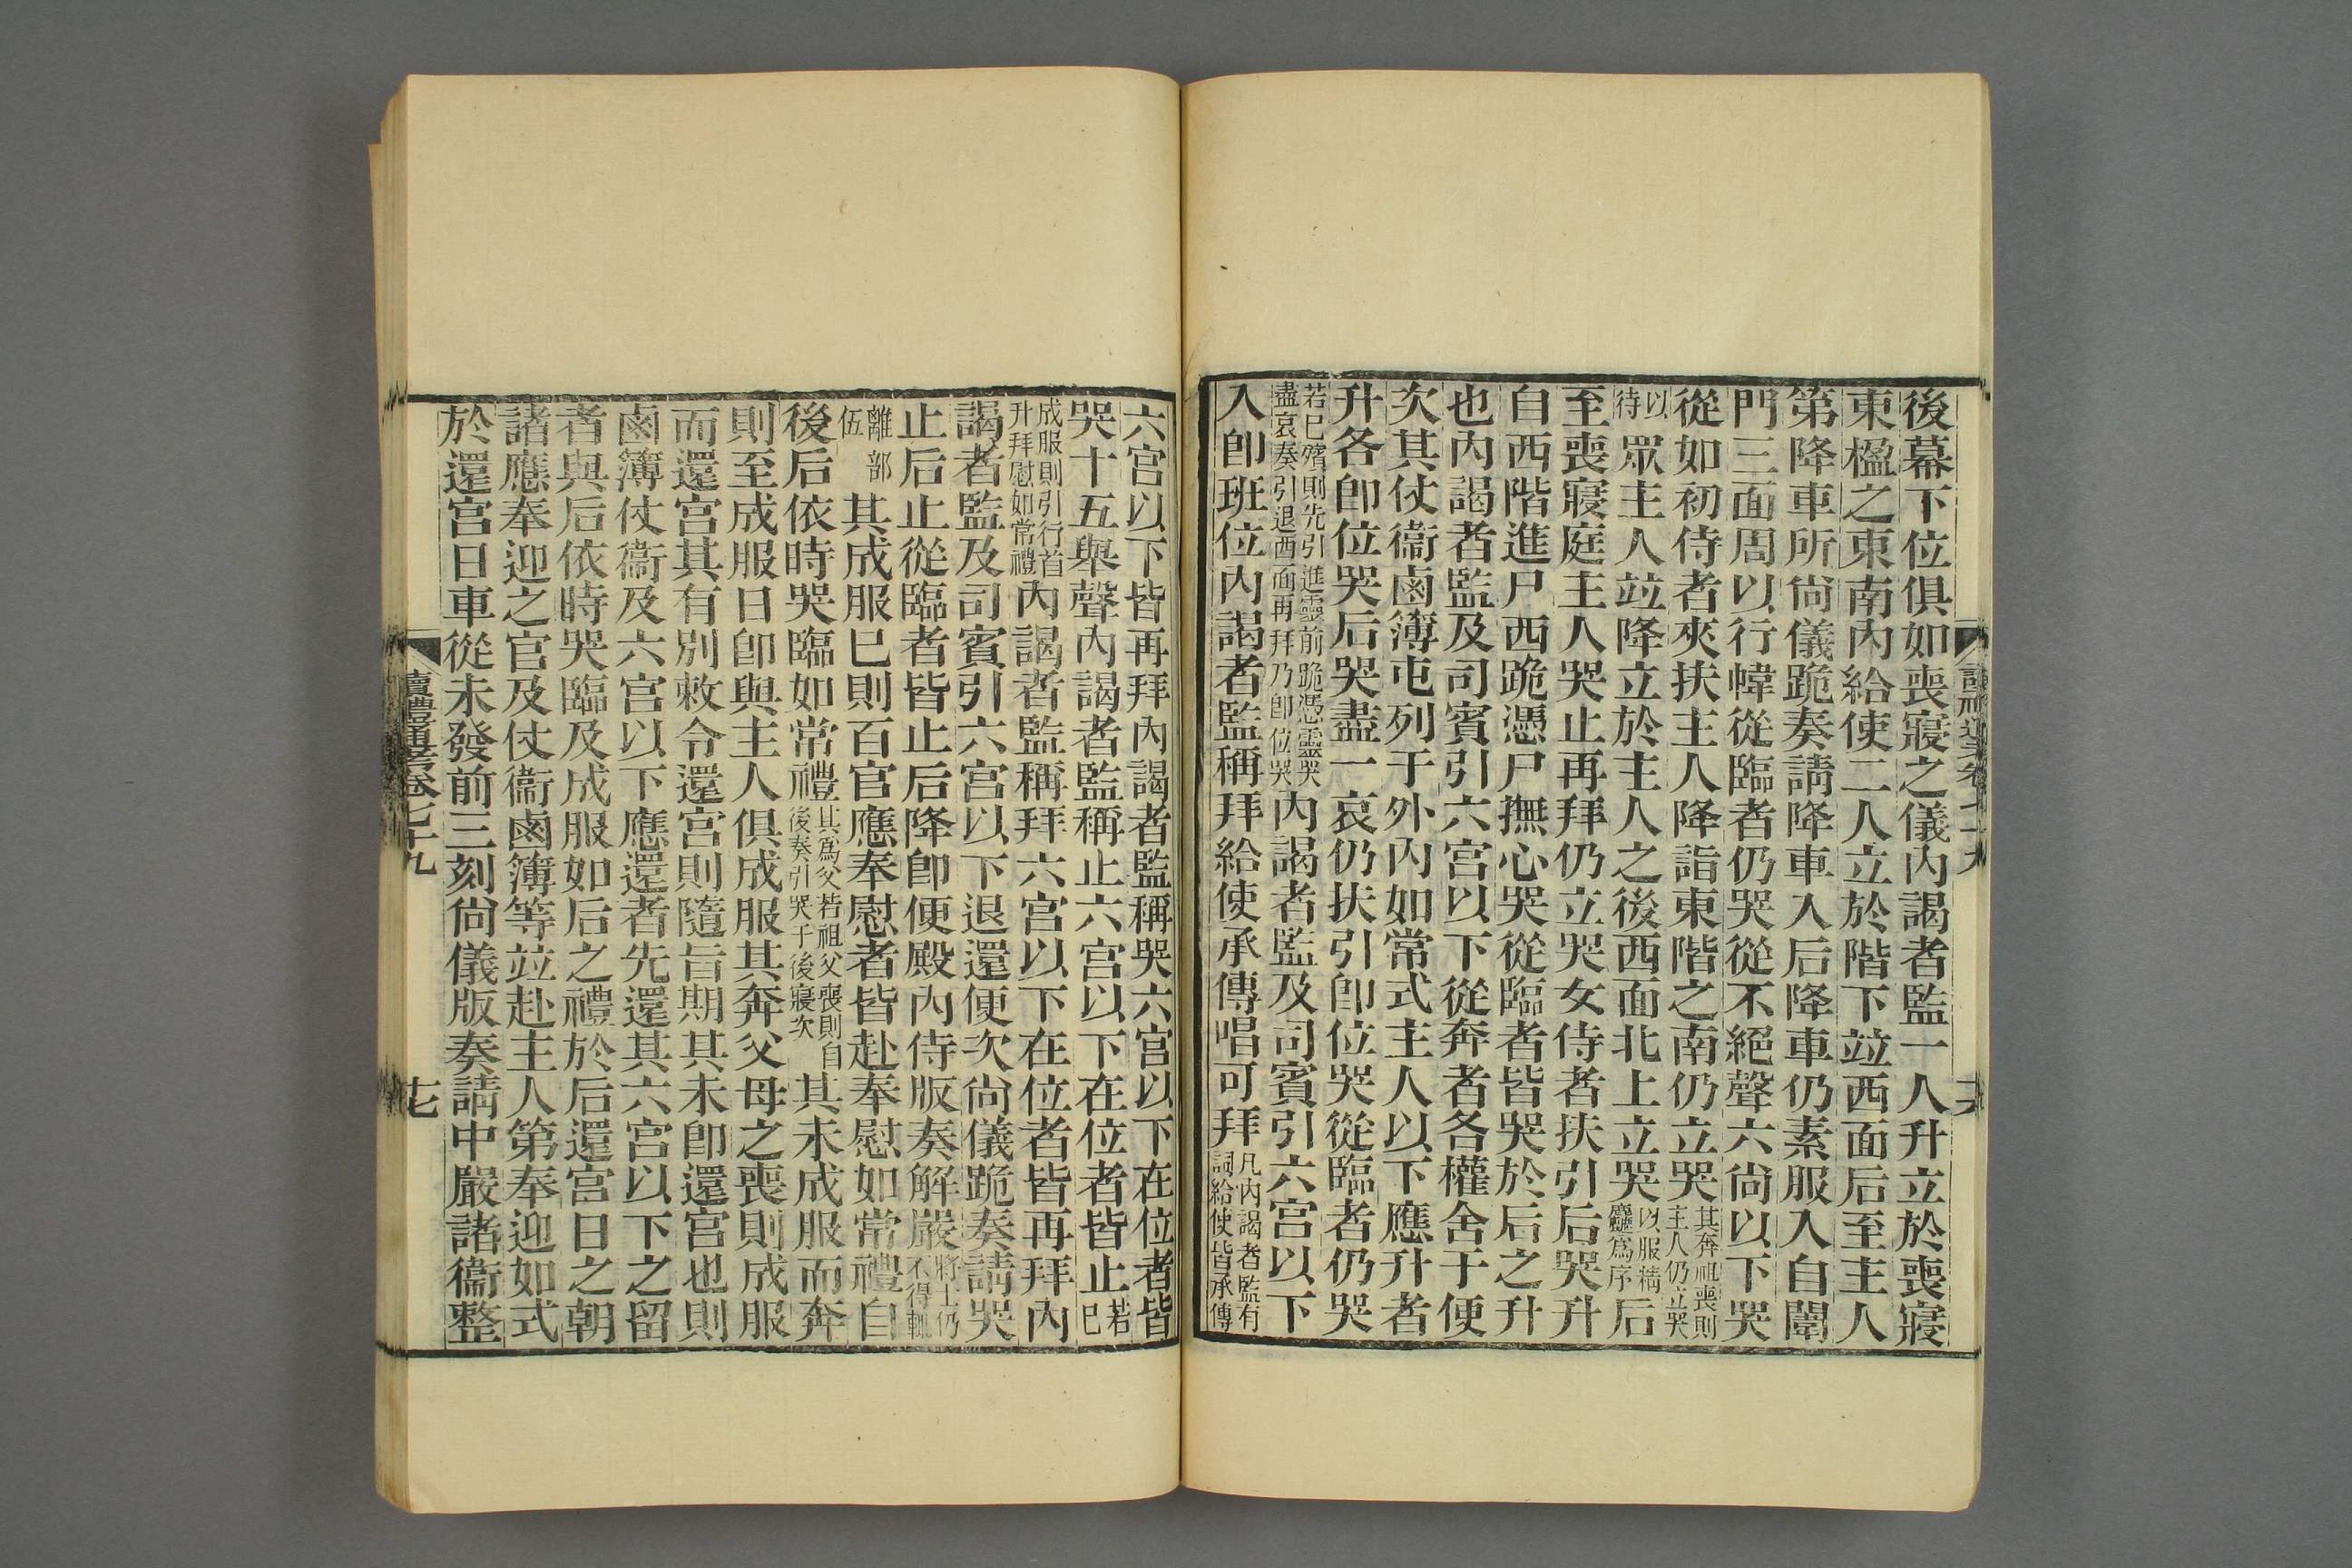 後幕下位俱如喪寢之儀內謁者監一人升立於喪寢
東楹之東南內給使二人立於階下竝西面后至主人
第降車所尙儀跪奏請降車入后降車仍素服入自闈
門三面周以行幃從臨者仍哭從不絕聲六尙以下哭
從如初侍者夾扶主人降詣東階之南仍立哭其奔祖喪則主人仍立哭
以待眾主人竝降立於主人之後西面北上立哭以服精麤爲序后
至喪寢庭主人哭止再拜仍立哭女侍者扶引后哭升
自西階進尸西跪憑尸撫心哭從臨者皆哭於后之升
也內謁者監及司賓引六宮以下從奔者各權舍于便
次其仗衞鹵簿屯列于外內如常式主人以下應升者
升各卽位哭后哭盡一哀仍扶引卽位哭從臨者仍哭
若巳殯則先引進靈前跪憑靈哭盡哀奏引退西面再拜乃卽位哭內謁者監及司賓引六宮以下
入卽班位內謁者監稱拜給使承傳唱可拜凡內謁者監有詞給使皆承傳
六宮以下皆再拜內謁者監稱哭六宮以下在位者皆
哭十五舉聲內謁者監稱止六宮以下在位者皆止若巳
成服則引行首升拜慰如常禮內謁者監稱拜六宮以下在位者皆再拜內
謁者監及司賓引六宮以下退還便次尙儀跪奏請哭
止后止從臨者皆止后降卽便殿內侍版奏解嚴將士仍不得輒
離部伍其成服巳則百官應奉慰者皆赴奉慰如常禮自
後后依時哭臨如常禮其爲父若祖父喪則自後奏引哭于後寢次其未成服而奔
則至成服日卽與主人俱成服其奔父母之喪則成服
而還宮其有別敕令還宮則隨旨期其未卽還宮也則
鹵簿仗衞及六宮以下應還者先還其六宮以下之留
者與后依時哭臨及成服如后之禮於后還宮日之朝
諸應奉迎之官及仗衞鹵簿等竝赴主人第奉迎如式
於還宮日車從未發前三刻尙儀版奏請中嚴諸衞整
讀禮通考卷七十九
十七